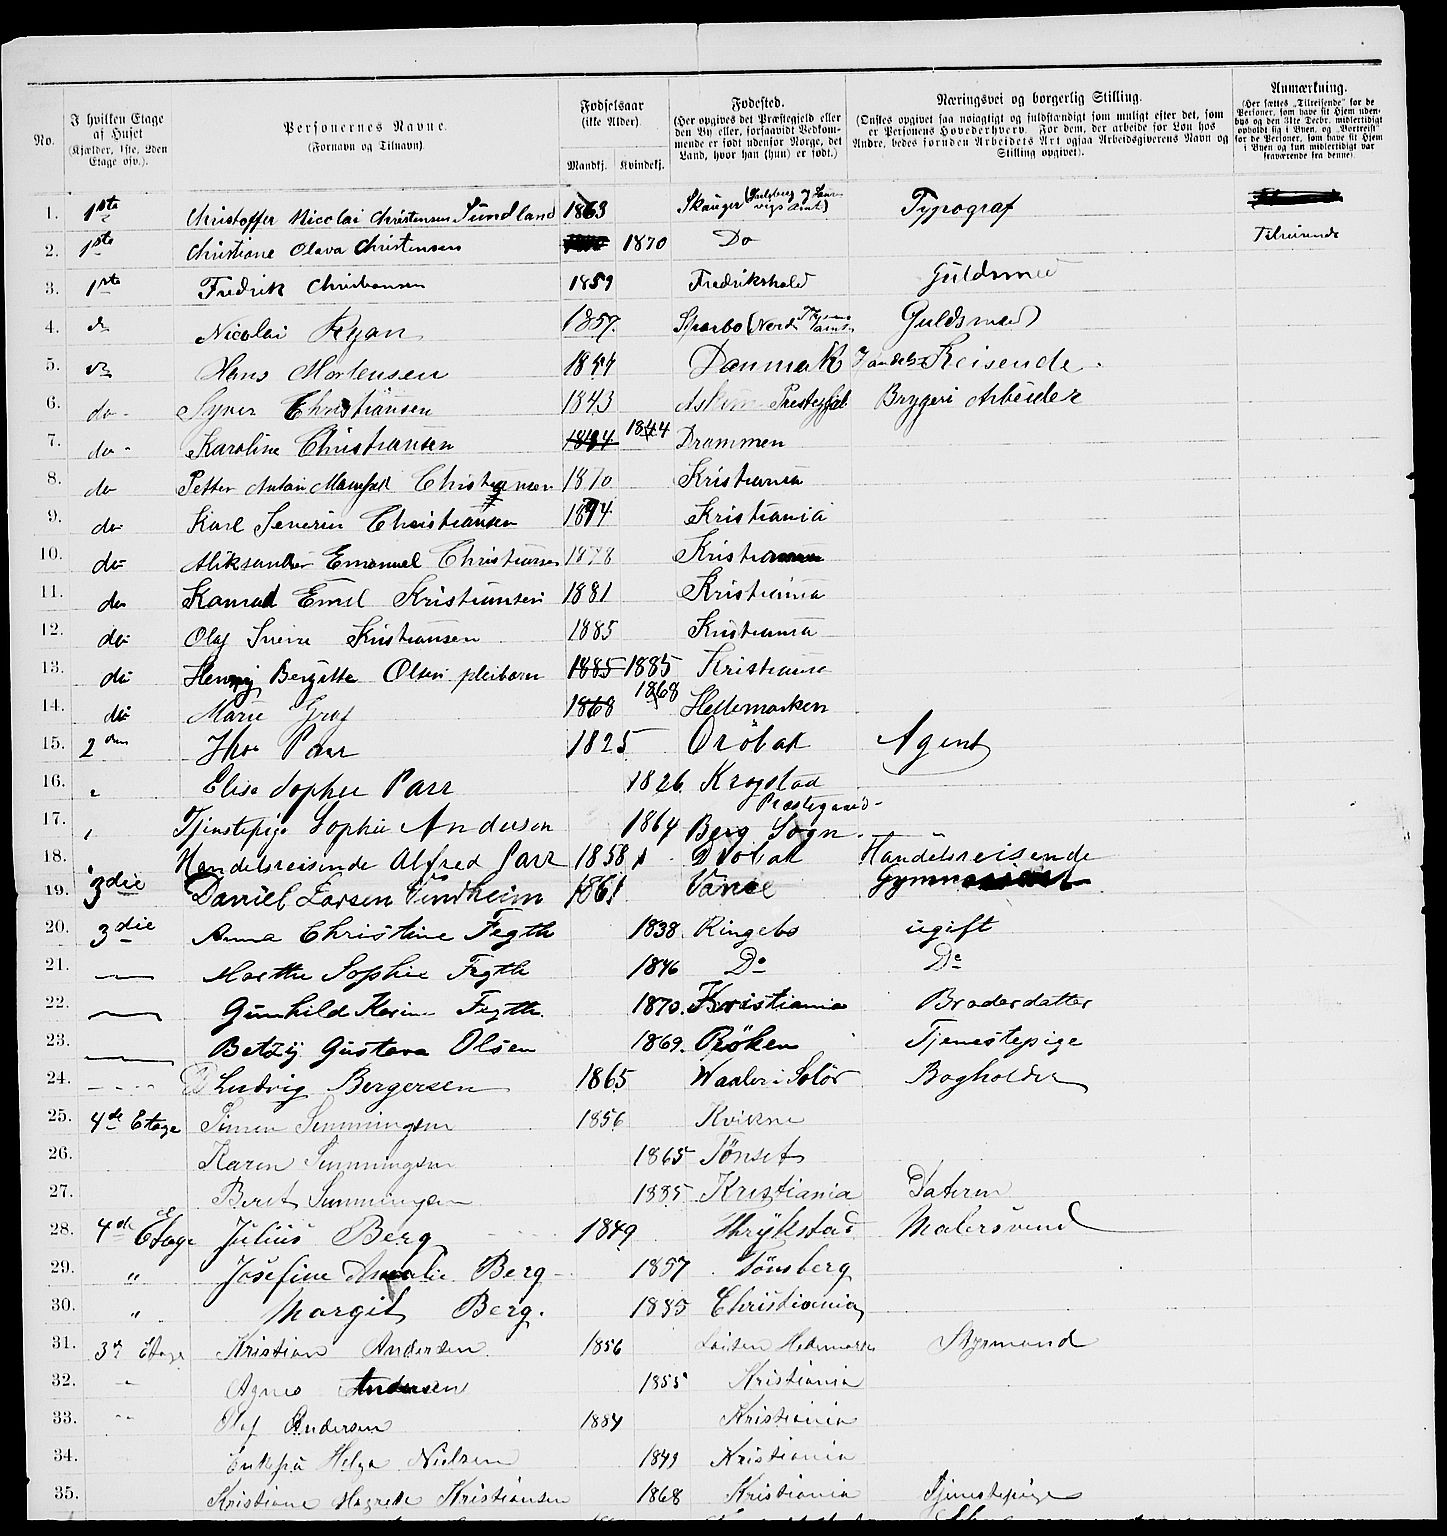 No. I hvilken Etage af Huset (Kjælder, 1ste, 2den Etage osv.). Personernes Navne. (Fornavn og Tilnavn) Fødselsaar (ikke Alder). Mandkj. Kvindekj. Fødested. (Her opgives det Præstegjeld eller den By eller, forsaavidt Vedkommende er født udenfor Norge, det Land, hvor han (hun) er født.) Næringsvei og borgerlig Stilling. (Ønskes opgivet saa nøiagtigt og fuldstændigt som muligt efter det, som er Personens Hovederhverv. For dem, der arbeide for Løn hos Andre, bedes foruden Arbeidets Art ogsaa Arbeidsgiverens Navn og Stilling opgivet). Anmærkning. (Her sættes „Tilreisende" for de Personer, som have sit Hjem udenbys og den 31te Decbr. midlertidigt opholdt sig i Byen, og „Bortreist" for de Personer, som have sit Hjem i Byen og kun midlertidigt var fraværende fra denne).
1. 1ste Christoffer Nicolai Christensen Sundland 1863 Skauger Typograf
2. 1ste Christiane Olava Christensen 1870 Do Tilreisende
3. 1ste Fredrik Christiansen 1859 Fredrikshald Guldsmed
4. do Nicolai Ryan 1857. Sparbo (Nord. Thjems amt Guldsmed
5. do Hans Mortensen 1847 Danmark Handels Reisende
6. do Syver Christiansen 1843 Askim Prestegjel Bryggeri Arbeider
7. do Karoline Christiansen 1844 1844 Drammen
8. do Petter Anton Christiansen 1870 Kristiania
9. do Karl Severin Christiansen 1874 Kristiania
10. do Aliksander Emanuel Christiansen 1878 Kristiania
11. do Konrad Emil Kristiansen 1881 Kristiania
12. do Olaf Kristiansen 1885 Kristiania
13. do Henny Bergitte Olsen pleibarn 1885 1885 Kristiania
14. do Marie Graf 1868 1868 Hedemarken
15. 2den Parr 1825 Drøbak Agent
16. " Elise Sophie Parr 1826 Krogstad
17. " Tjenstepige Sophie Andersen 1864 Berg Sogn. Præstegaard
18. " Handelsreisende Alfred Parr 1858 Drøbak Handelsreisende
19. 3die Daniel Larsen 1861 Vanse
20. 3die Anna Christine Fegth 1838. Ringebo ugift
21. Marthe Sophie Fegth 1846 Do Do
22. Gunhild Karine Fegth. 1870. Kristiania Broderdatter
23. Betzy Gustava Olsen 1869. Røken Tjenestepige
24. Ludvig Bergersen 1865 Waaler i Solør Bogholder
25. 4de Etage Simen 1856 Kvikne
26. Karen 1865 Tønset
27. Beret 1885 Kristiania Datter
28. 4de Etage Julius Berg 1849 Malersvend
29. " Josefine Amalie Berg 1857 Tønsberg
30. " Margit Berg. 1885 Christiania
31. 3de Etage Kristian Andersen 1856 Løiten Hedemarken Styrmand
32. " Agnes Andersen 1855 Kristiania
33. " Olaf Andersen 1884 Kristiania
34. Helga Nielsen 1849 Kristiania
35. Kristiane Magrete Kristiansen 1868 Kristiania Tjenestepige